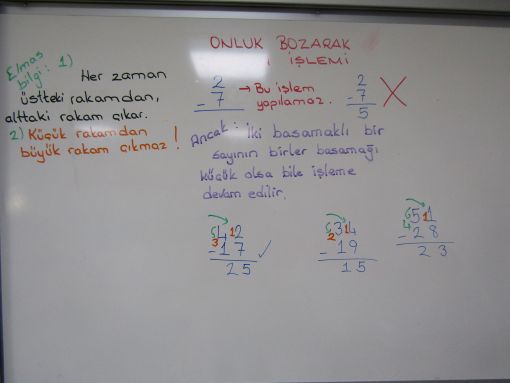 ONLUK BOZARAK
İŞLEMİ
Elmas
bilgi: 1)
Her zaman
üstteki rakamdan,
alttaki rakam çıkar.
2) Küçük rakamdan
büyük rakam çıkmaz !
2
- 7
→ Bu işlem
yapılamaz.
2
- 7
5
X
Ancak: İki basamaklı bir
sayının birler basamağı
küçük olsa bile işleme
devam edilir.
42
3 1
- 17
25 ✓
34
2 1
- 19
15
51
4 1
- 28
23